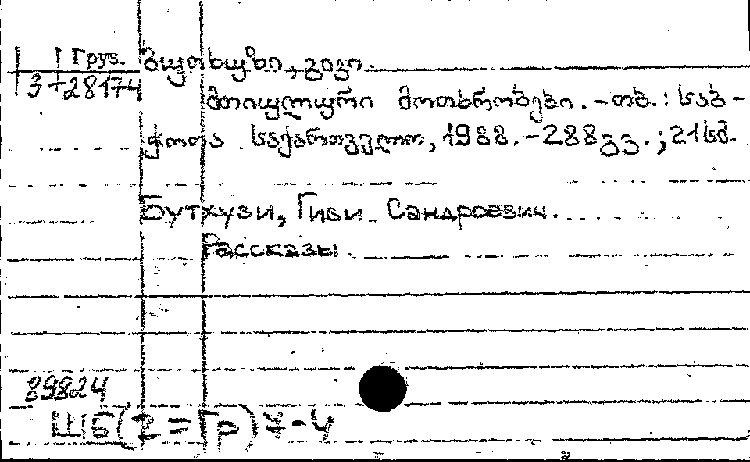 Груз.
3-28174
ბუთხუზი, გივი.
მთიულური მოთხრობები. - თბ. : საბ-
ჭოთა საქართველო, 1988. - 288გვ. ; 21სმ.
Бутхузи, Гиви Сандроевич.
Рассказы
89824
Ш6(2=Гр)7-4